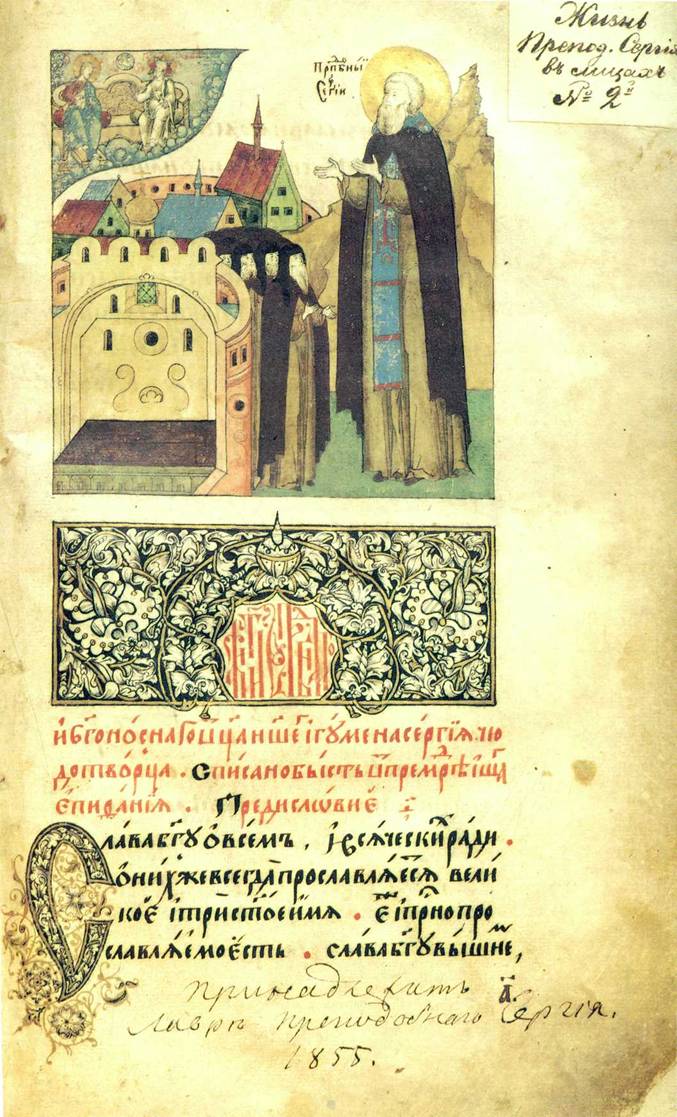 Жизнь
Препод. Сергія
въ лицахъ
№ 2й
Прпбныи
Сергіи
и бг҃оноснаго ѿца нш҃его ігумена сергїѧ чю
дотворца . Списано бысть ѿ премрѣ
епифанїѧ . Предисловие
Слава бг҃у ѡ всемъ , і всѧчески ради .
ѡ нихже всегда прославлѧетсѧ вели
кое і трист҃ое имѧ . еже і прно про
славлѧемо есть . слава бг҃у вышне ,
а҃.
принадлежитъ
Лавръ преподобнаго Сергія.
1855.